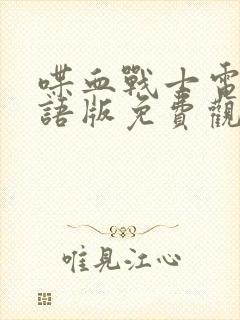 喋血戰士電
語版免費觀
唯見江心